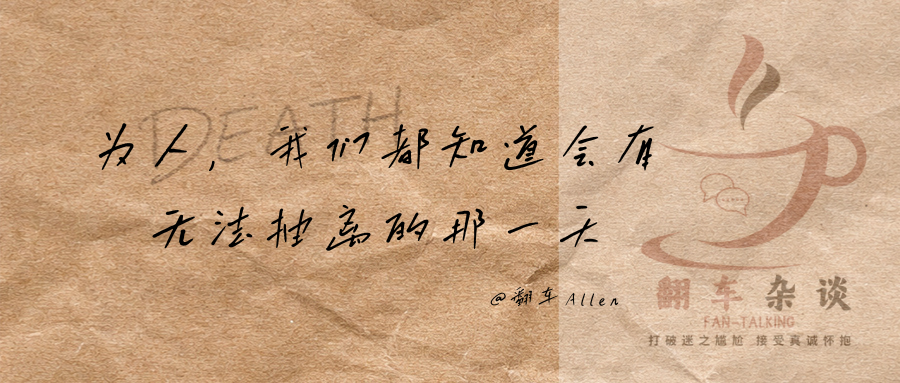 DEATH
为人，我们都知道会有
无法抽离的那一天
@翻车Allen
翻车杂谈
FAN-TALKING
打破迷之尴尬 接受真诚怀抱